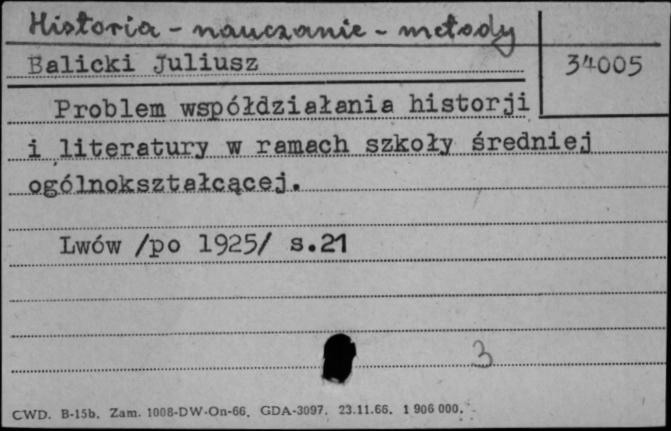 Historia - nauczanie - metody
Balicki Juliusz
34005
Problem współdziałania historji
i literatury w ramach szkoły średniej
ogólnokształcącej.
Lwów /po 1925/ s.21
3
CWD. B-15b. Zam. 1008-DW-On-66. GDA-3097. 23.11.66. 1 906 000.